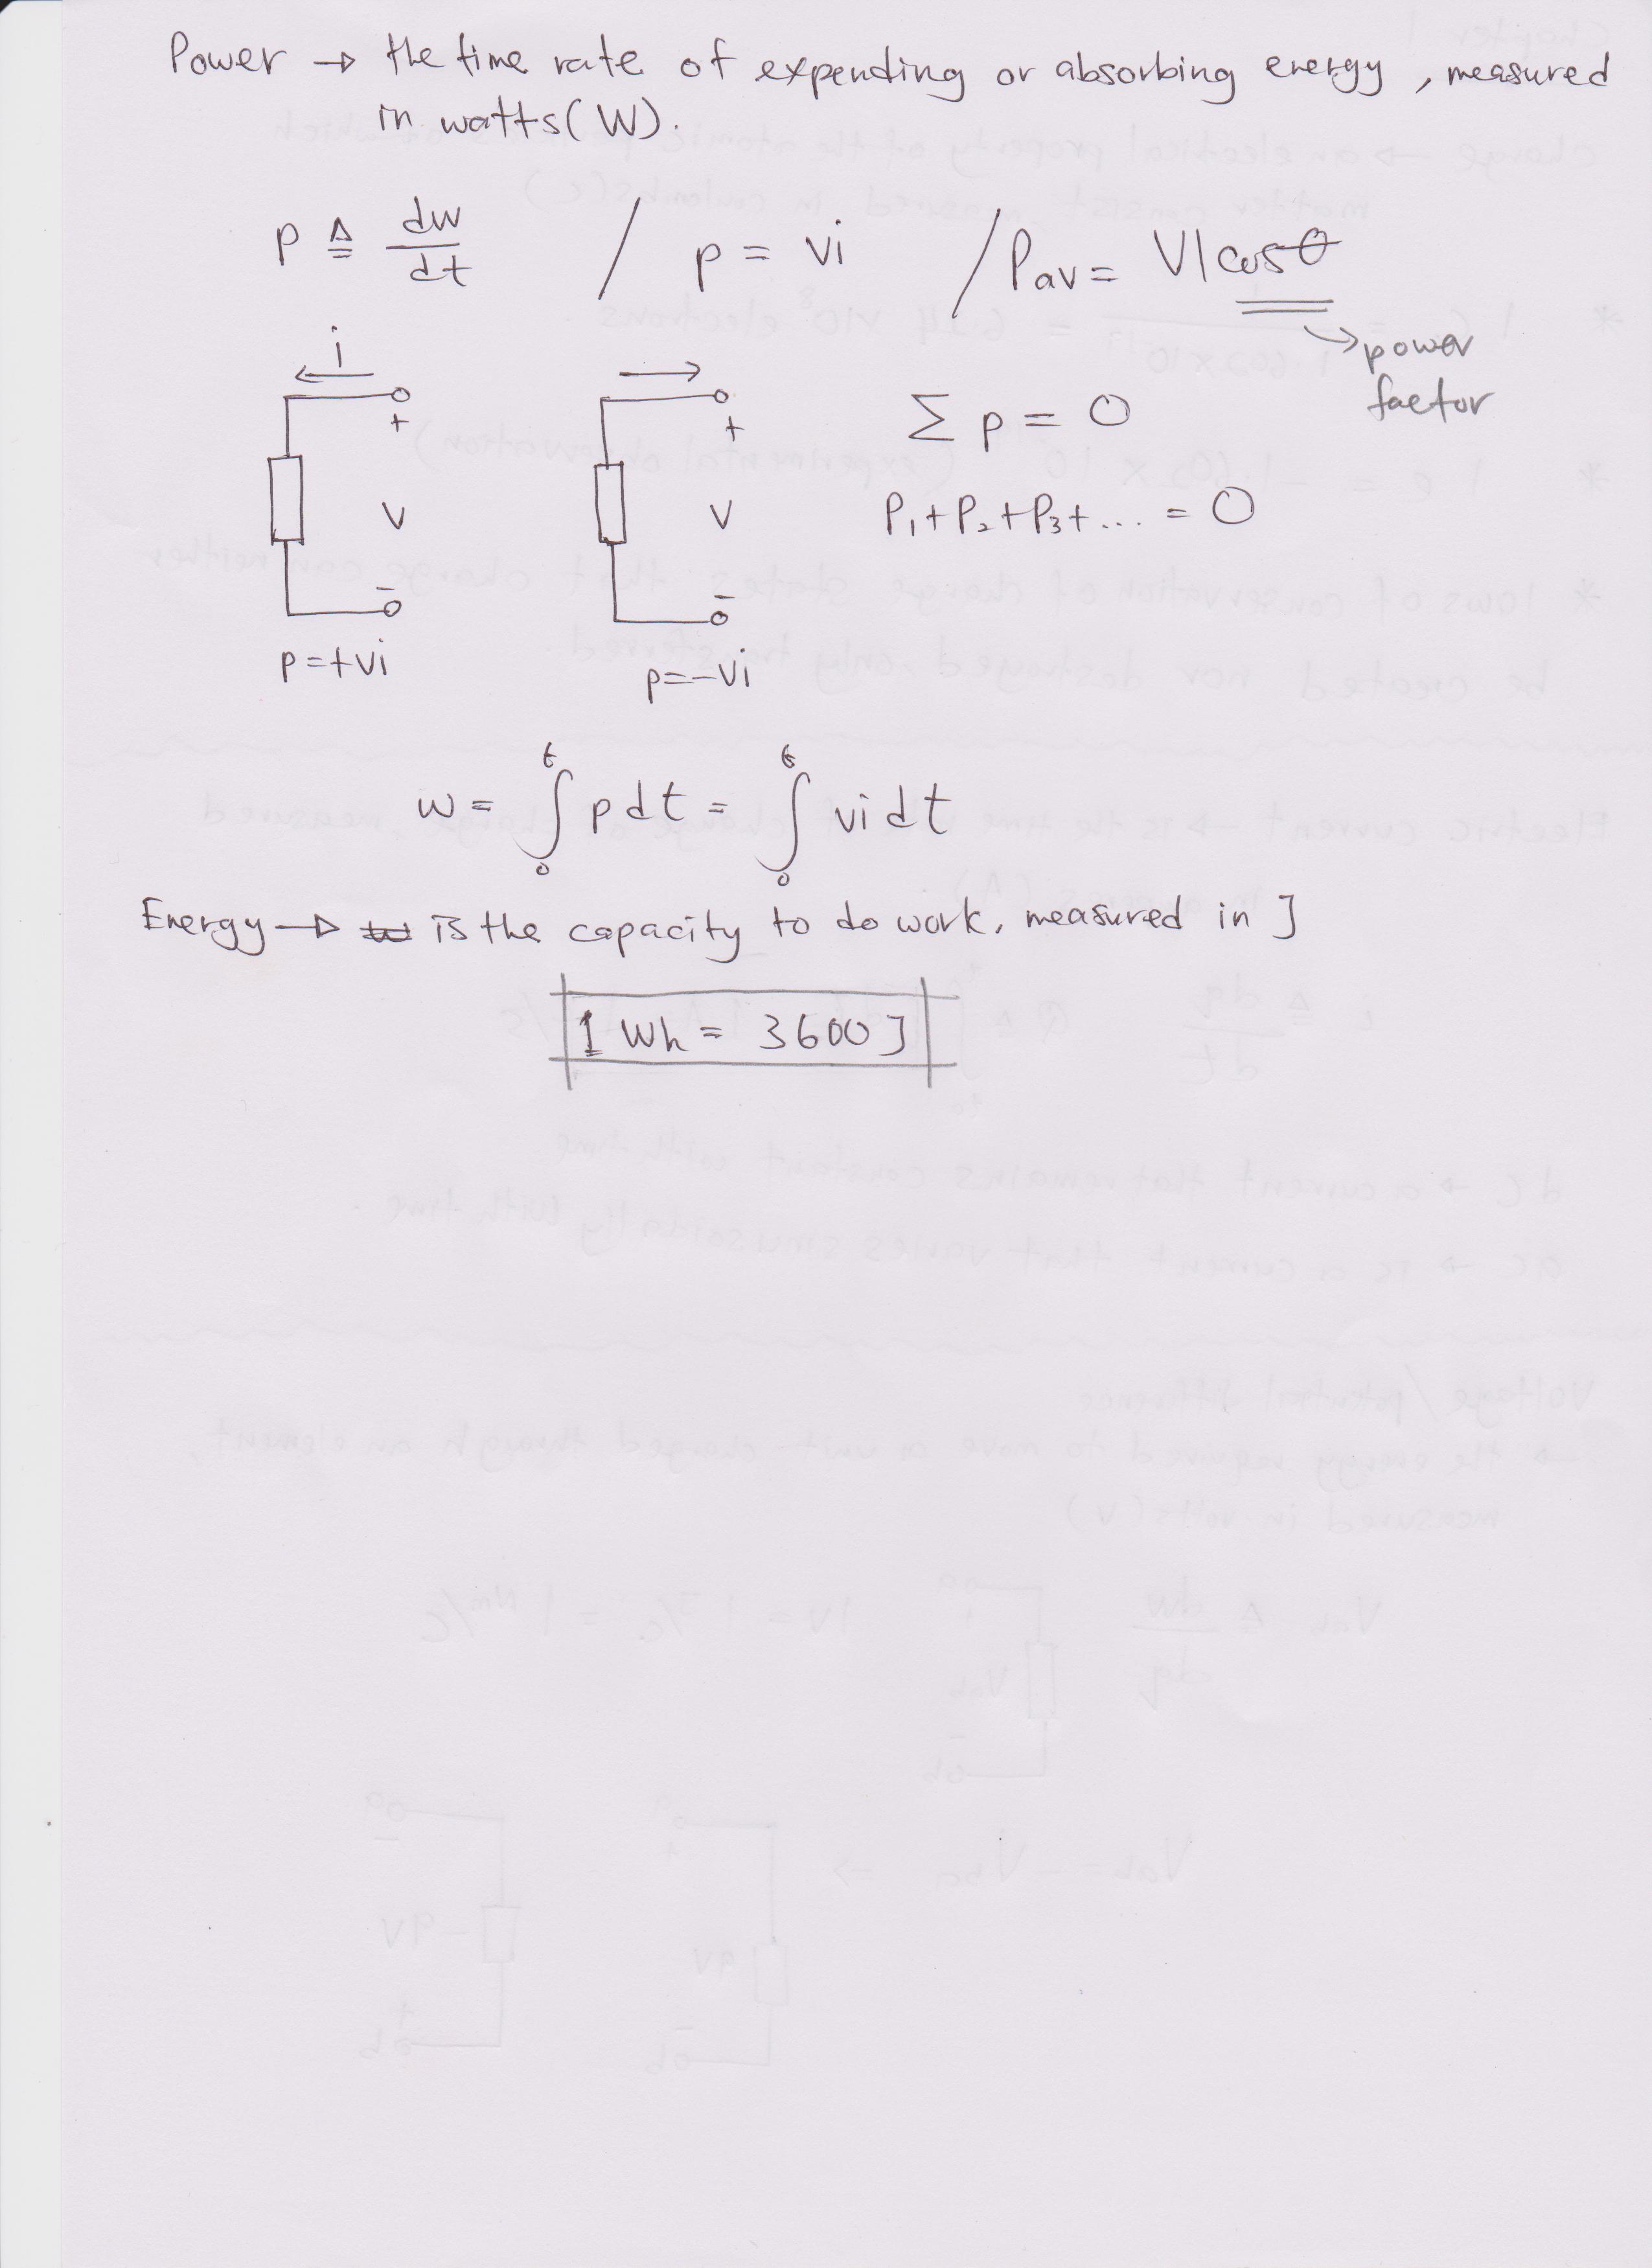 Power → the time rate of expending or absorbing energy, measured
in watts (W).
p ≜ dw/dt / p = vi / Pav = VI cosθ
→ power
factor
i
+ + Σ p = 0
V V P1 + P2 + P3 + ... = 0
- -
p=+vi p=-vi
w = ∫₀ᵗ p dt = ∫₀ᵗ vi dt
Energy → is the capacity to do work, measured in J
1 Wh = 3600 J